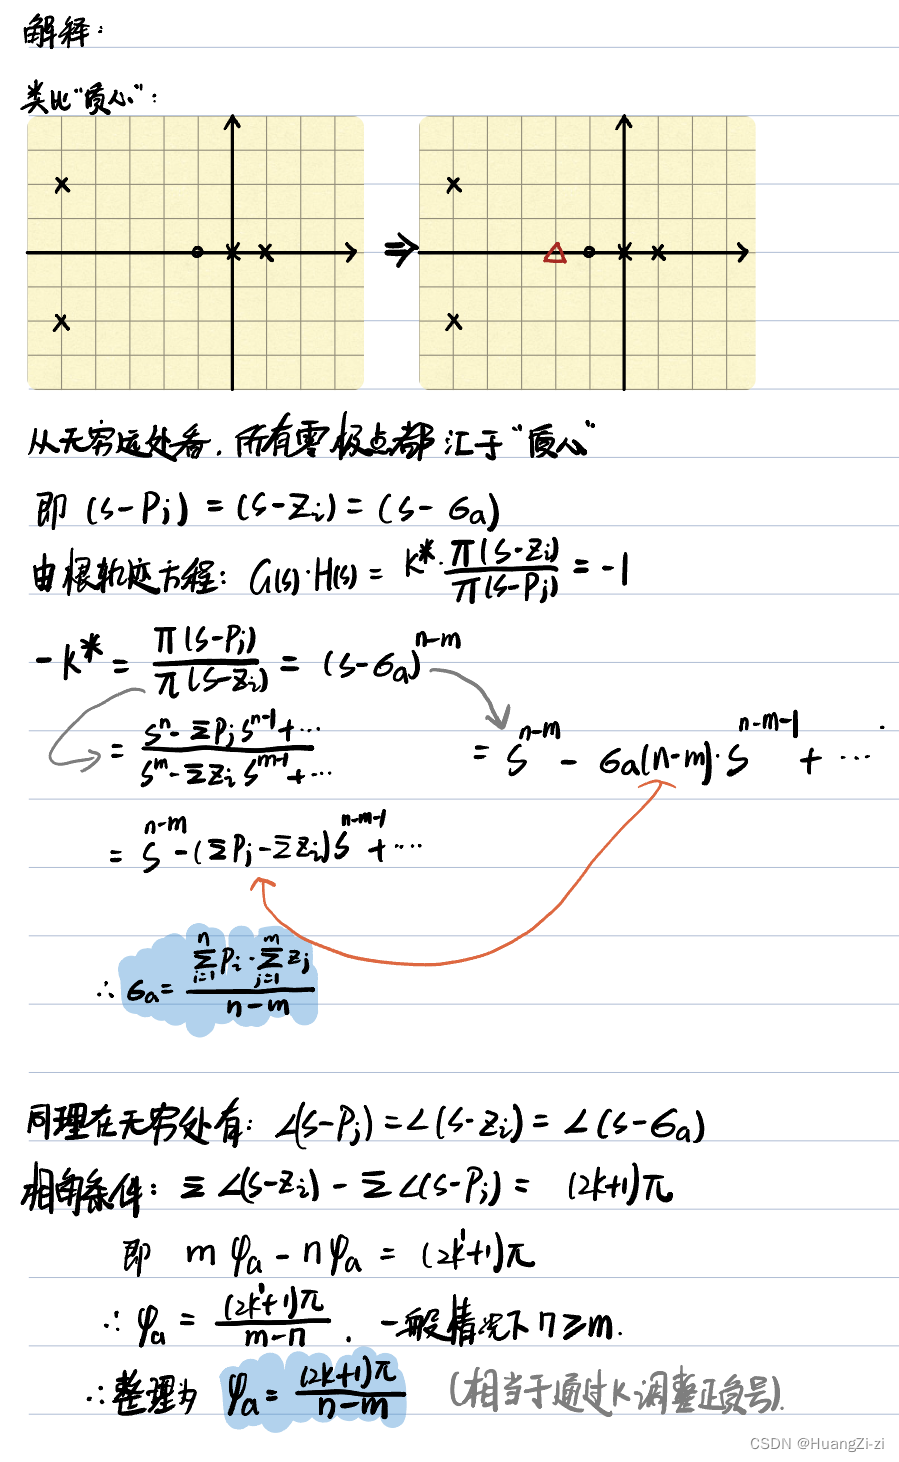 解释:
类比“质心”:
从无穷远处看,所有零极点都汇于“质心”
即 (s-Pj) = (s-Zi) = (s-σa)
由根轨迹方程: G(s)·H(s) = K*·π(s-Zi)/π(s-Pj) = -1
-K* = π(s-Pj)/π(s-Zi) = (s-σa)^(n-m)
= (s^n-ΣPj s^(n-1)+…)/(s^m-ΣZi s^(m-1)+…) = s^(n-m) - σa(n-m)·s^(n-m-1) + …
= s^(n-m)-(ΣPj-ΣZi)s^(n-m-1)+…
∴ σa = (Σ_(i=1)^n Pi - Σ_(j=1)^m Zj)/(n-m)
同理在无穷处有: ∠(s-Pj) = ∠(s-Zi) = ∠(s-σa)
相角条件: Σ∠(s-Zi) - Σ∠(s-Pj) = (2k+1)π
即 mφa - nφa = (2k'+1)π
∴ φa = (2k'+1)π/(m-n). 一般情况下 n≥m.
∴ 整理为 φa = (2k+1)π/(n-m) (相当于通过K调整正负号).
CSDN @HuangZi-zi